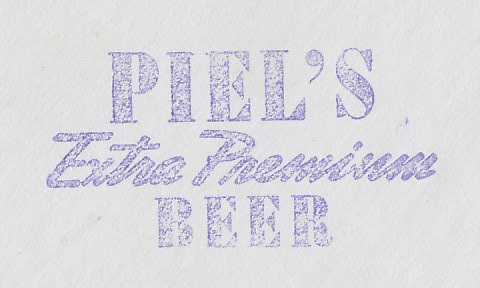 PIEL'S
Extra Premium
BEER